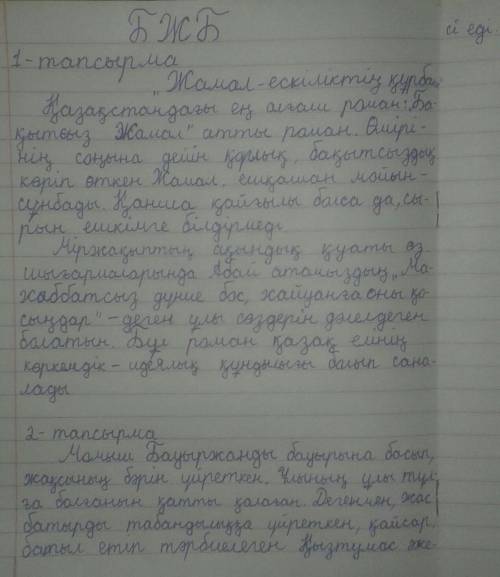 БЖБ
сі еді.
1-тапсырма
„Жамал-ескіліктің құрбаны
Қазақстандағы ең алғаш роман: „Ба-
қытсыз Жамал" атты роман. Өмірі-
нің соңына дейін қорлық, бақытсыздық
көріп өткен Жамал, ешқашан мойын-
сұнбады. Қанша қайғылы болса да, сы-
рын ешкімге білдірмеді.
Міржақыптың ақындық қуаты өз
шығармаларында Абай атамыздың „Ма-
хаббатсыз дүние бос, хайуанға оны қо-
сыңдар" - деген ұлы сөздерін дәлелдеген
болатын. Бұл роман қазақ елінің
көркемдік - идеялық құндылығы болып сана-
лады
2-тапсырма
Момыш Бауыржанды бауырына басып,
жақсының бәрін үйреткен. Ұлының ұлы тұл-
ға болғанын қатты қалаған. Дегенмен, жас
батырды табандылыққа үйреткен, қайсар,
батыл етіп тәрбиелеген Қызтумас әже-